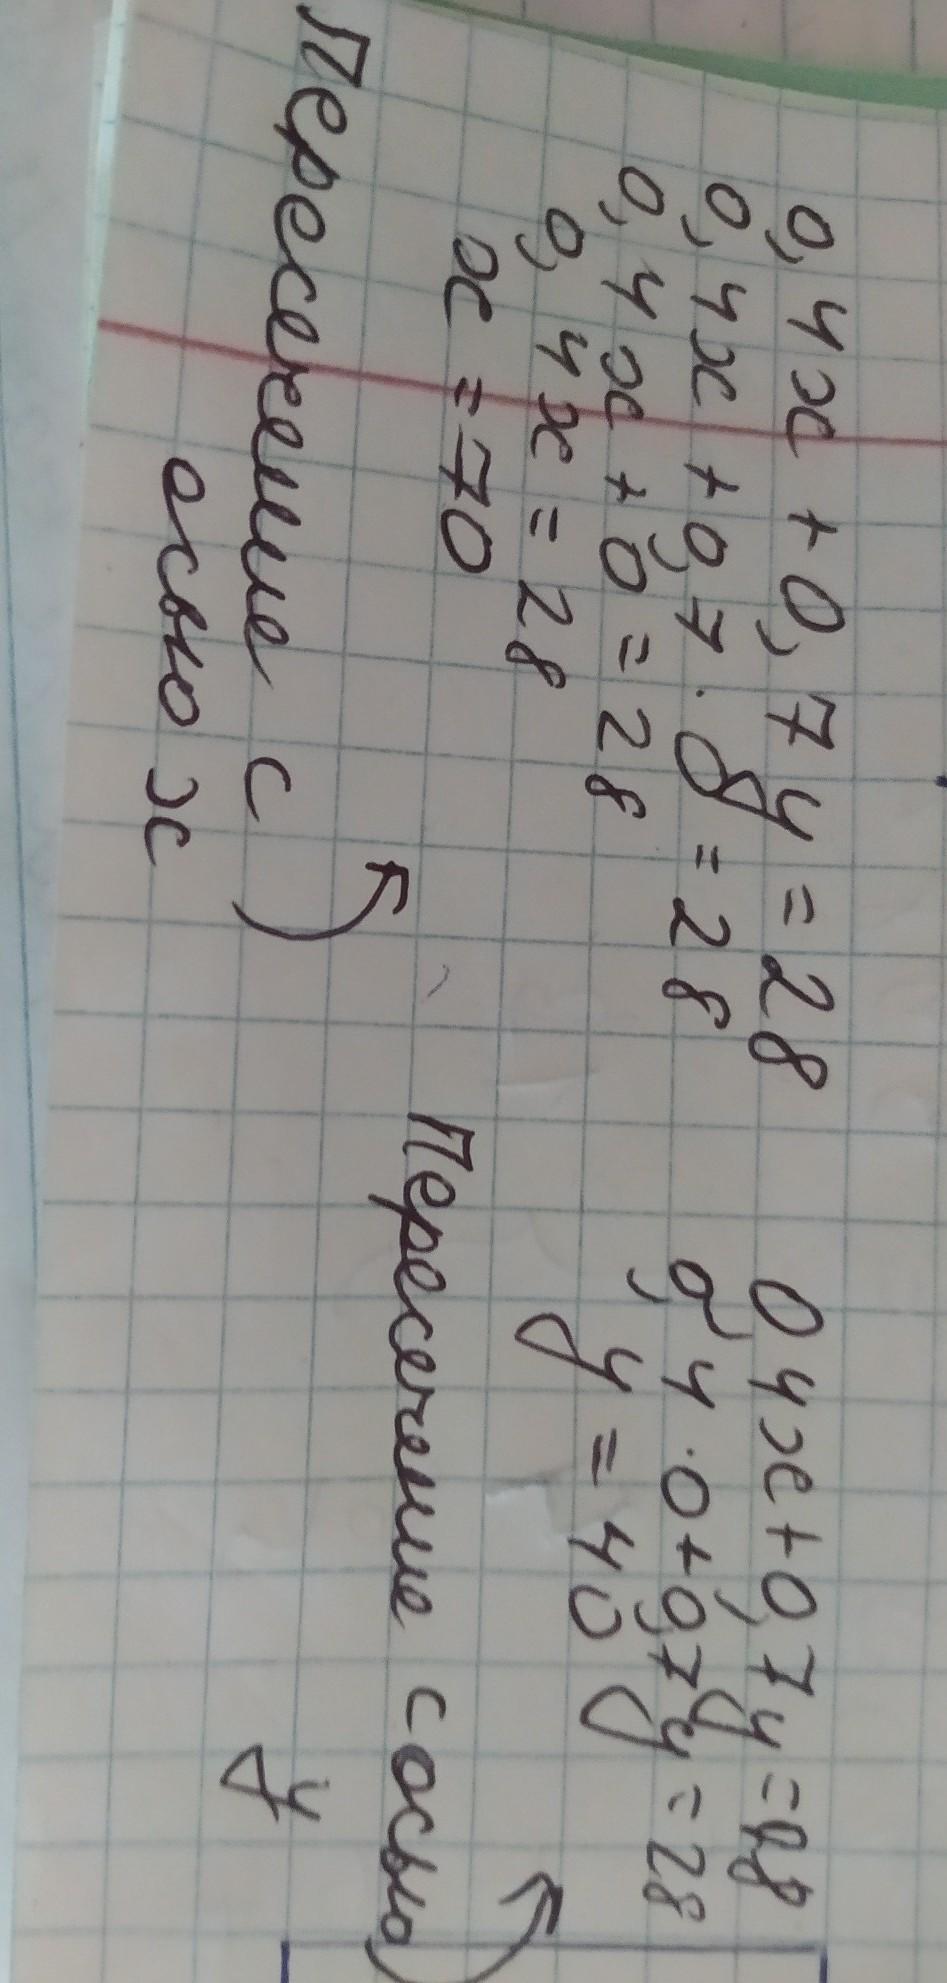 0,4x + 0,7y = 28
0,4x + 0,7 · 0 = 28
0,4x + 0 = 28
0,4x = 28
x = 70
Пересечение с
осью x
0 4x + 0,7y = 28
0,4 · 0 + 0,7y = 28
y = 40
Пересечение с осью
y